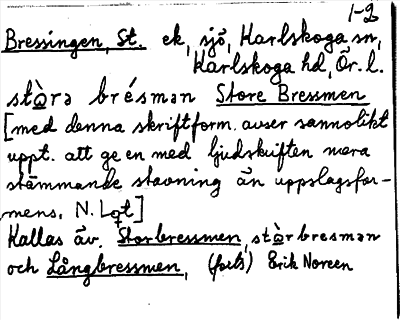 1-2
Bressingen, St. ek, sjö, Karlskoga sn,
Karlskoga hd, Ör. l.
stὰrə brésmən Store Bressmen
[med denna skriftform. avser sannolikt
uppt. att ge en med ljudskriften mera
stämmande stavning än uppslagsfor-
mens. N. Lqt]
Kallas äv. Storbressmen, stὰrbresmən
och Långbressmen, (forts) Erik Noreen